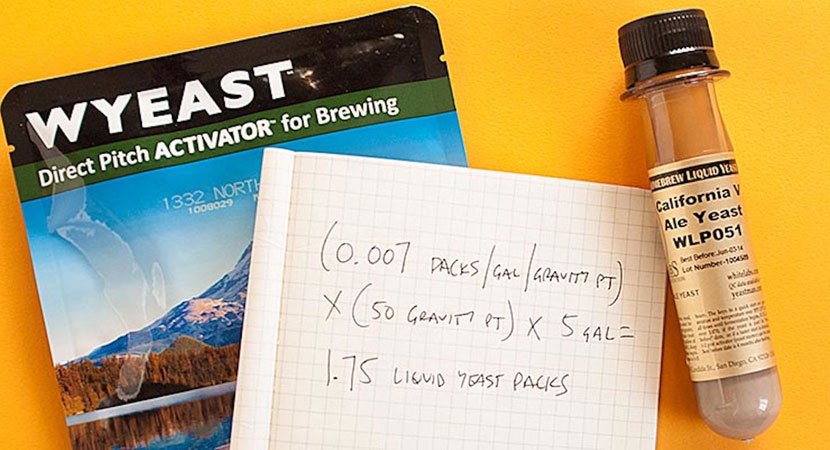 WYEAST™
Direct Pitch ACTIVATOR™ for Brewing
1332 NORTH
1008029
(0.007 PACKS/GAL/GRAVITY PT)
X (50 GRAVITY PT) X 5 GAL =
1.75 LIQUID YEAST PACKS
HOMEBREW LIQUID YEAST
California V
Ale Yeast
WLP051
Best Before: Jun-03-14
Lot Number-1004589
whitelabs
QC data
yeastman
YEAST
San Diego, CA